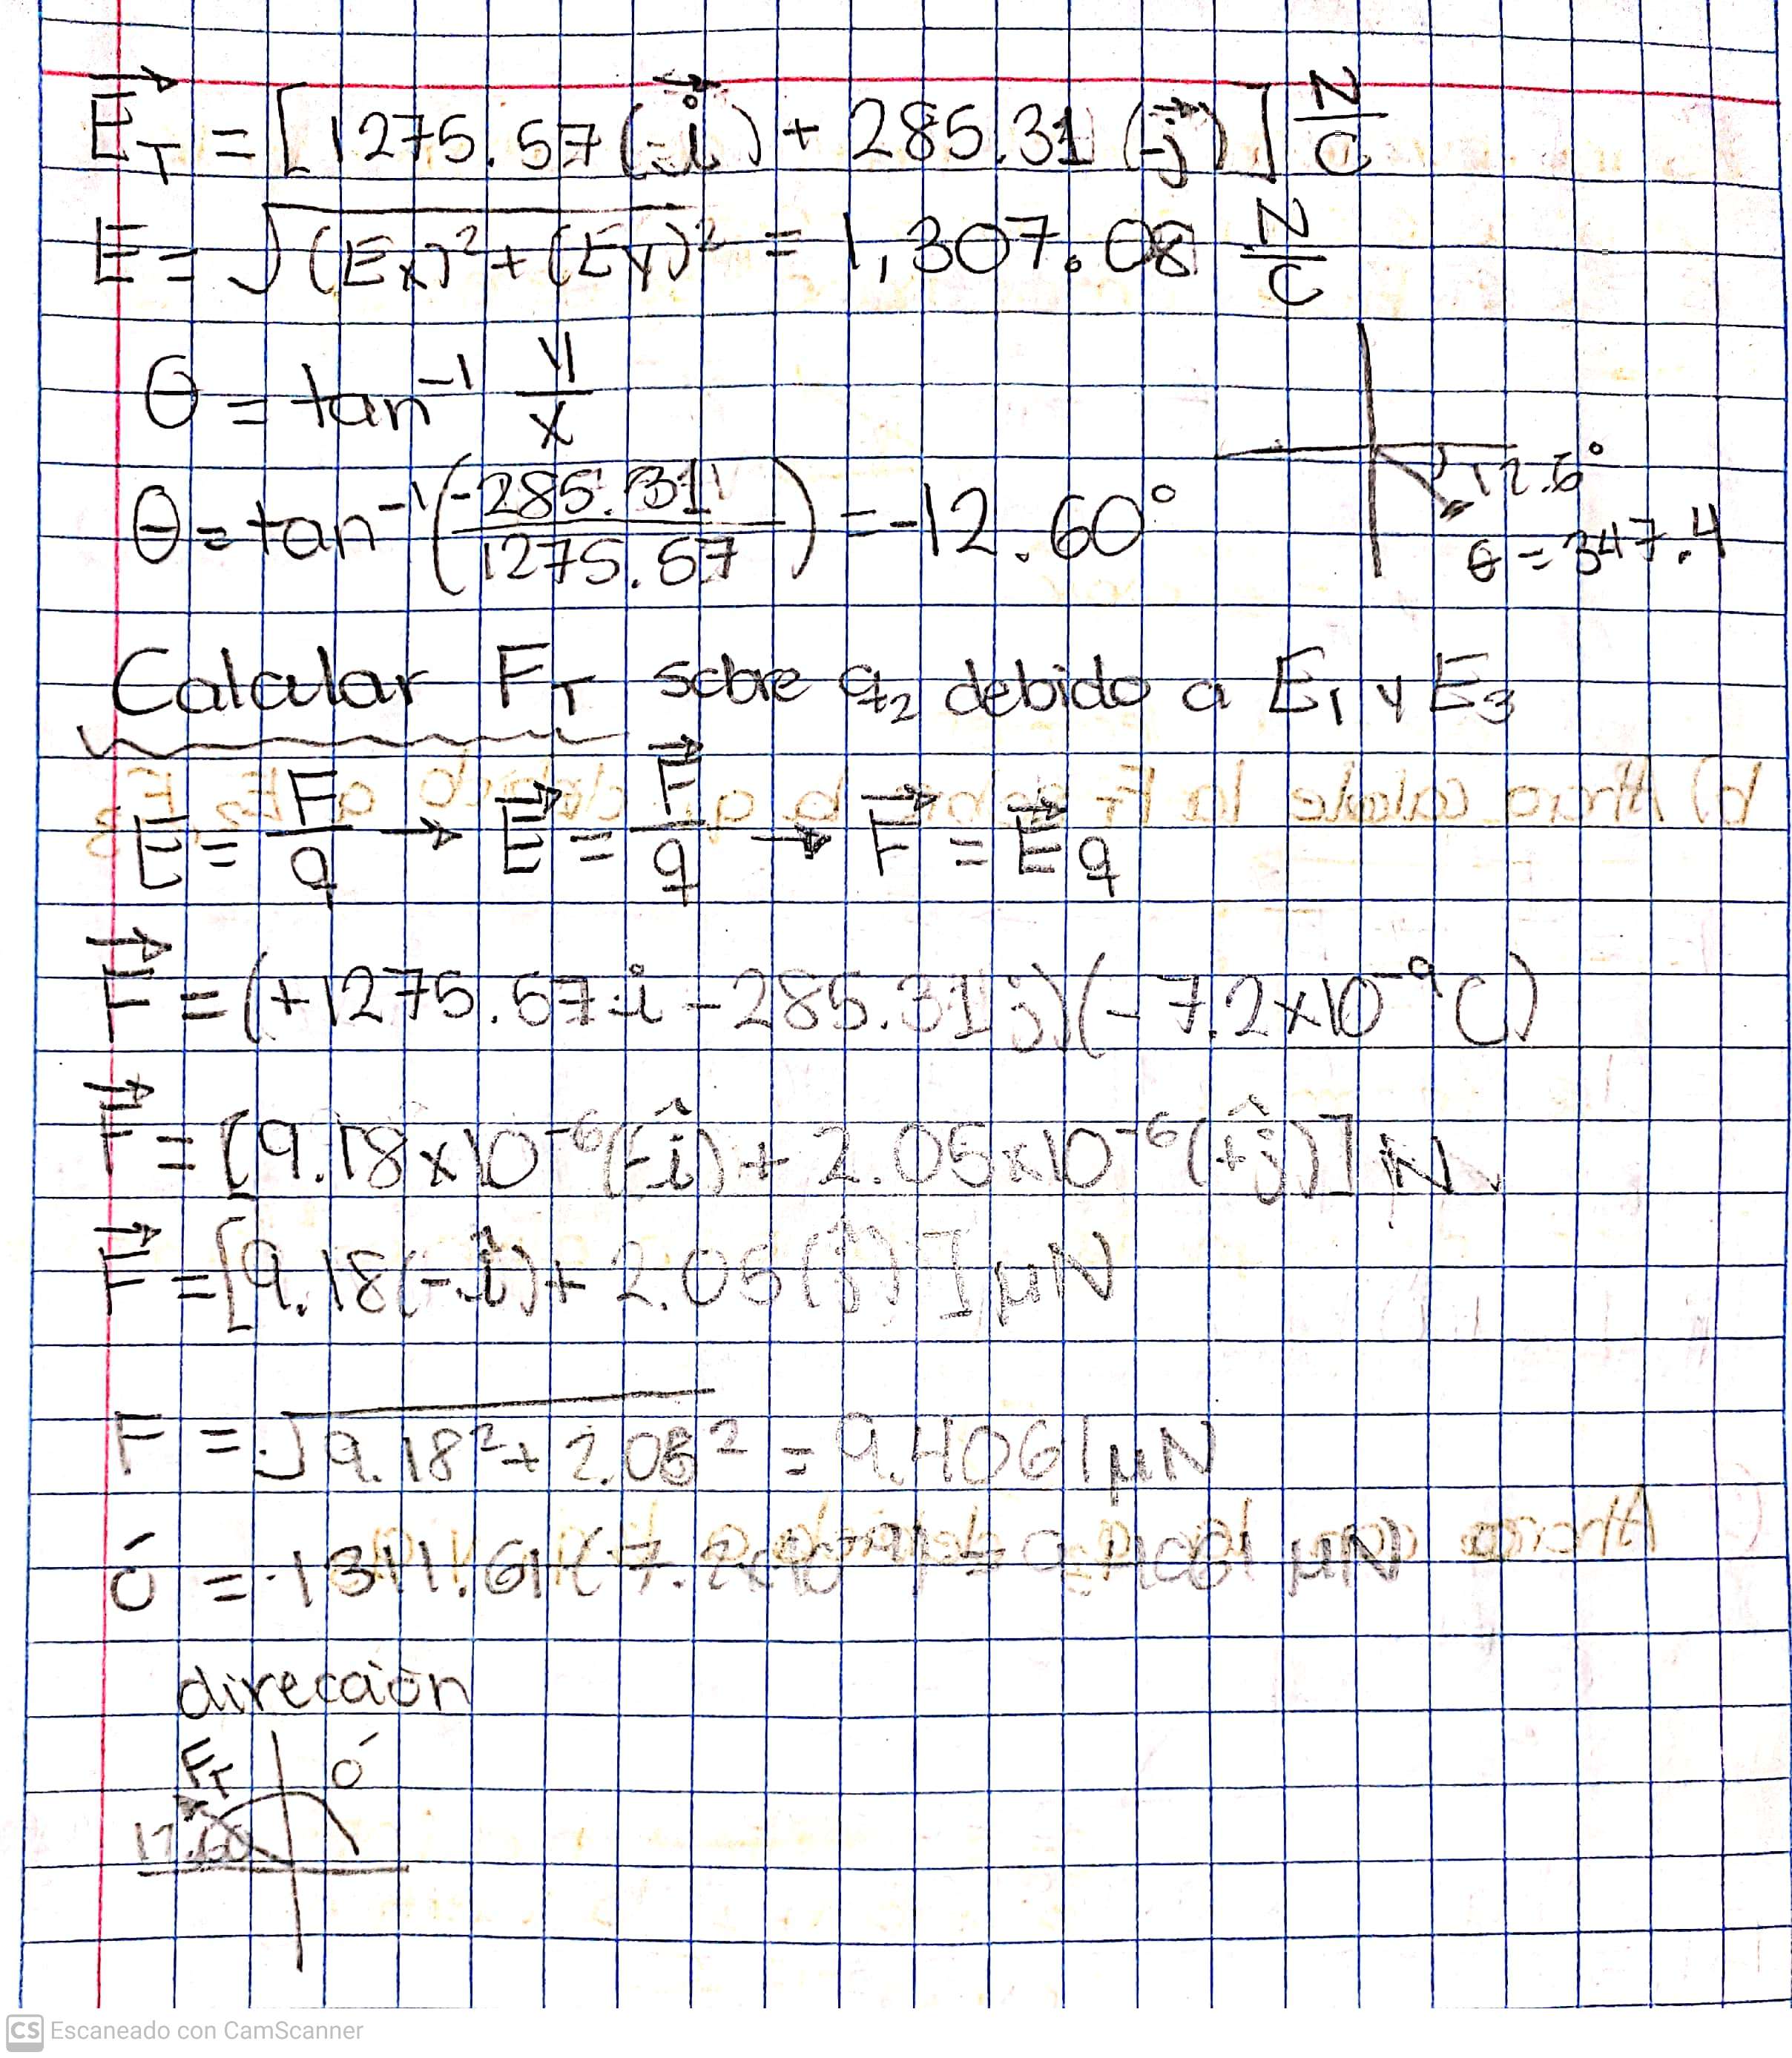 E⃗_T = [1275.57(-i⃗) + 285.31(-j⃗)] N/C
E = √((Ex)² + (Ey)²) = 1,307.08 N/C
θ = tan⁻¹ y/x
θ = tan⁻¹(-285.31/1275.57) = -12.60°
12.6°
θ = 347.4
Calcular F_T sobre q₂ debido a E₁ y E₃
E = F/q → E⃗ = F⃗/q → F⃗ = E⃗q
F⃗ = (+1275.57 i - 285.31 j)(-7.2x10⁻⁹C)
F⃗ = [9.18x10⁻⁶(-î) + 2.05x10⁻⁶(+ĵ)] N
F⃗ = [9.18(-î) + 2.05(ĵ)] μN
F = √(9.18² + 2.05²) = 9.4061 μN
ó = 1311.61(7.2x10⁻⁹) = 9.4061 μN
dirección
F_T ó
CS Escaneado con CamScanner